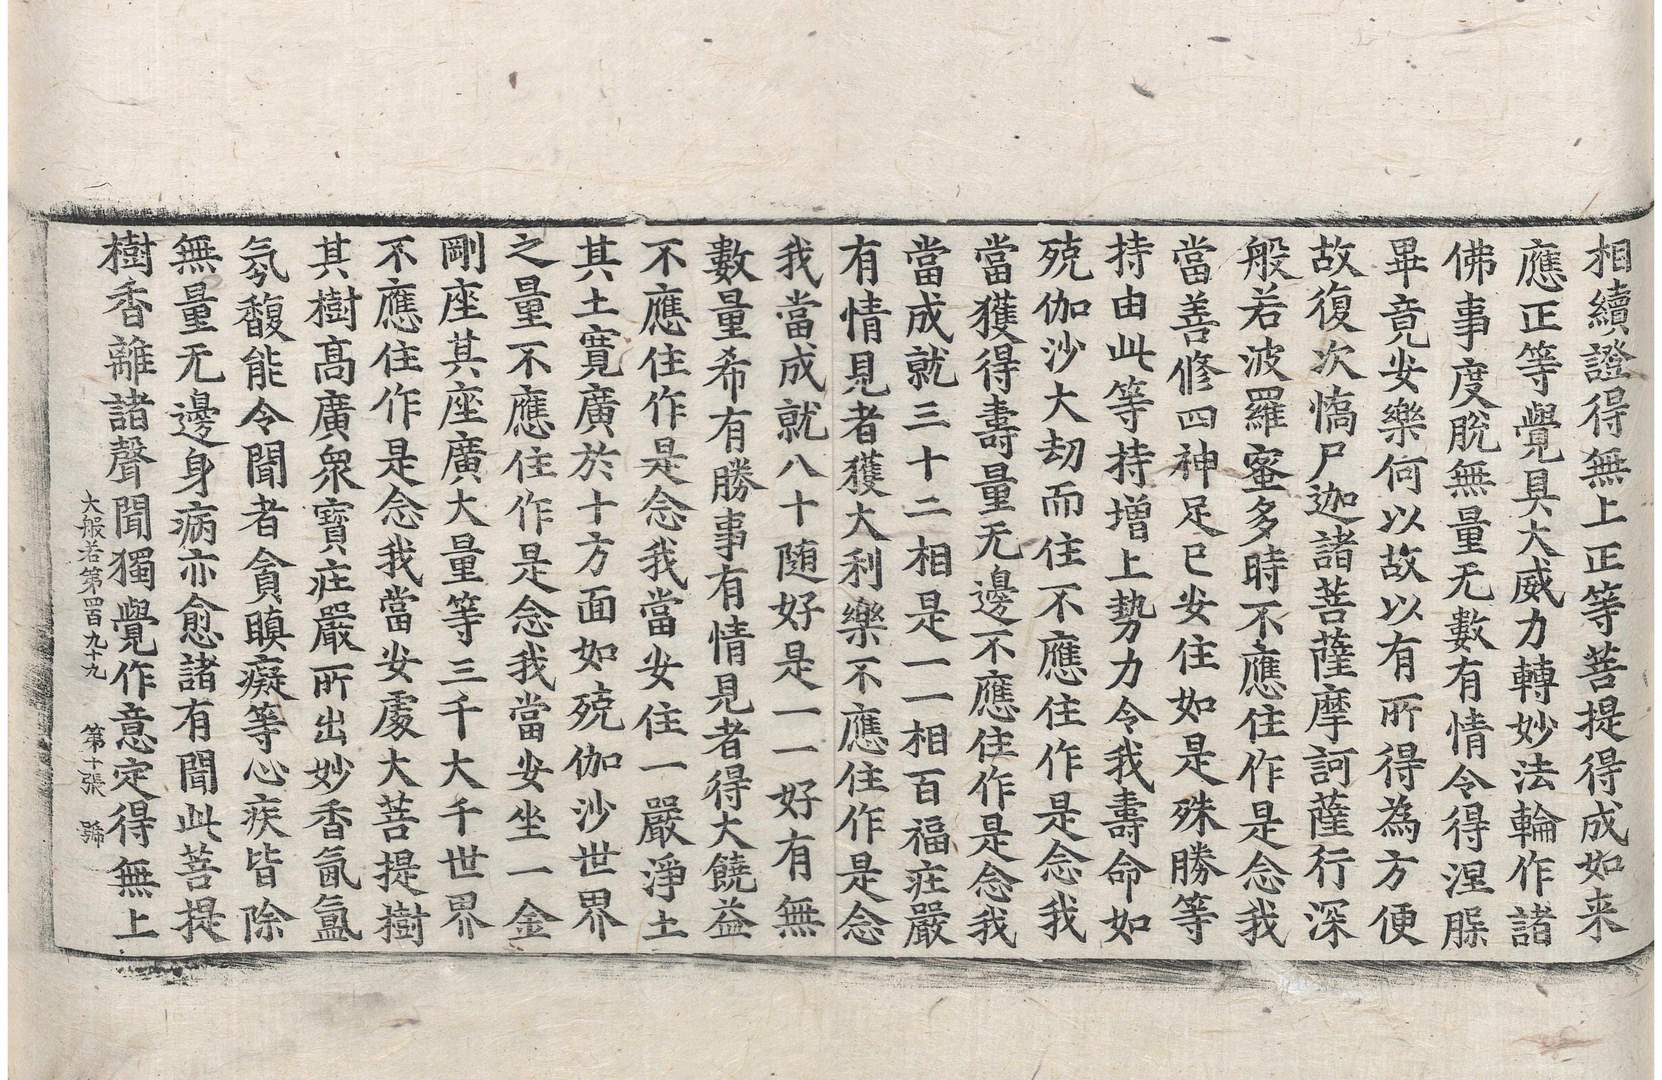 相續證得無上正等菩提得成如来
應正等覺具大威力轉妙法輪作諸
佛事度脫無量无數有情令得涅槃
畢竟安樂何以故以有所得為方便
故復次憍尸迦諸菩薩摩訶薩行深
般若波羅蜜多時不應住作是念我
當善修四神足已安住如是殊勝等
持由此等持增上勢力令我壽命如
殑伽沙大劫而住不應住作是念我
當獲得壽量无邊不應住作是念我
當成就三十二相是一一相百福莊嚴
有情見者獲大利樂不應住作是念
我當成就八十随好是一一好有無
數量希有勝事有情見者得大饒益
不應住作是念我當安住一嚴淨土
其土寬廣於十方面如殑伽沙世界
之量不應住作是念我當安坐一金
剛座其座廣大量等三千大千世界
不應住作是念我當安處大菩提樹
其樹高廣衆寶莊嚴所出妙香氤氲
氛馥能令聞者貪瞋癡等心疾皆除
無量无邊身病亦愈諸有聞此菩提
樹香離諸聲聞獨覺作意定得無上
大般若第四百九十九 第十張 號